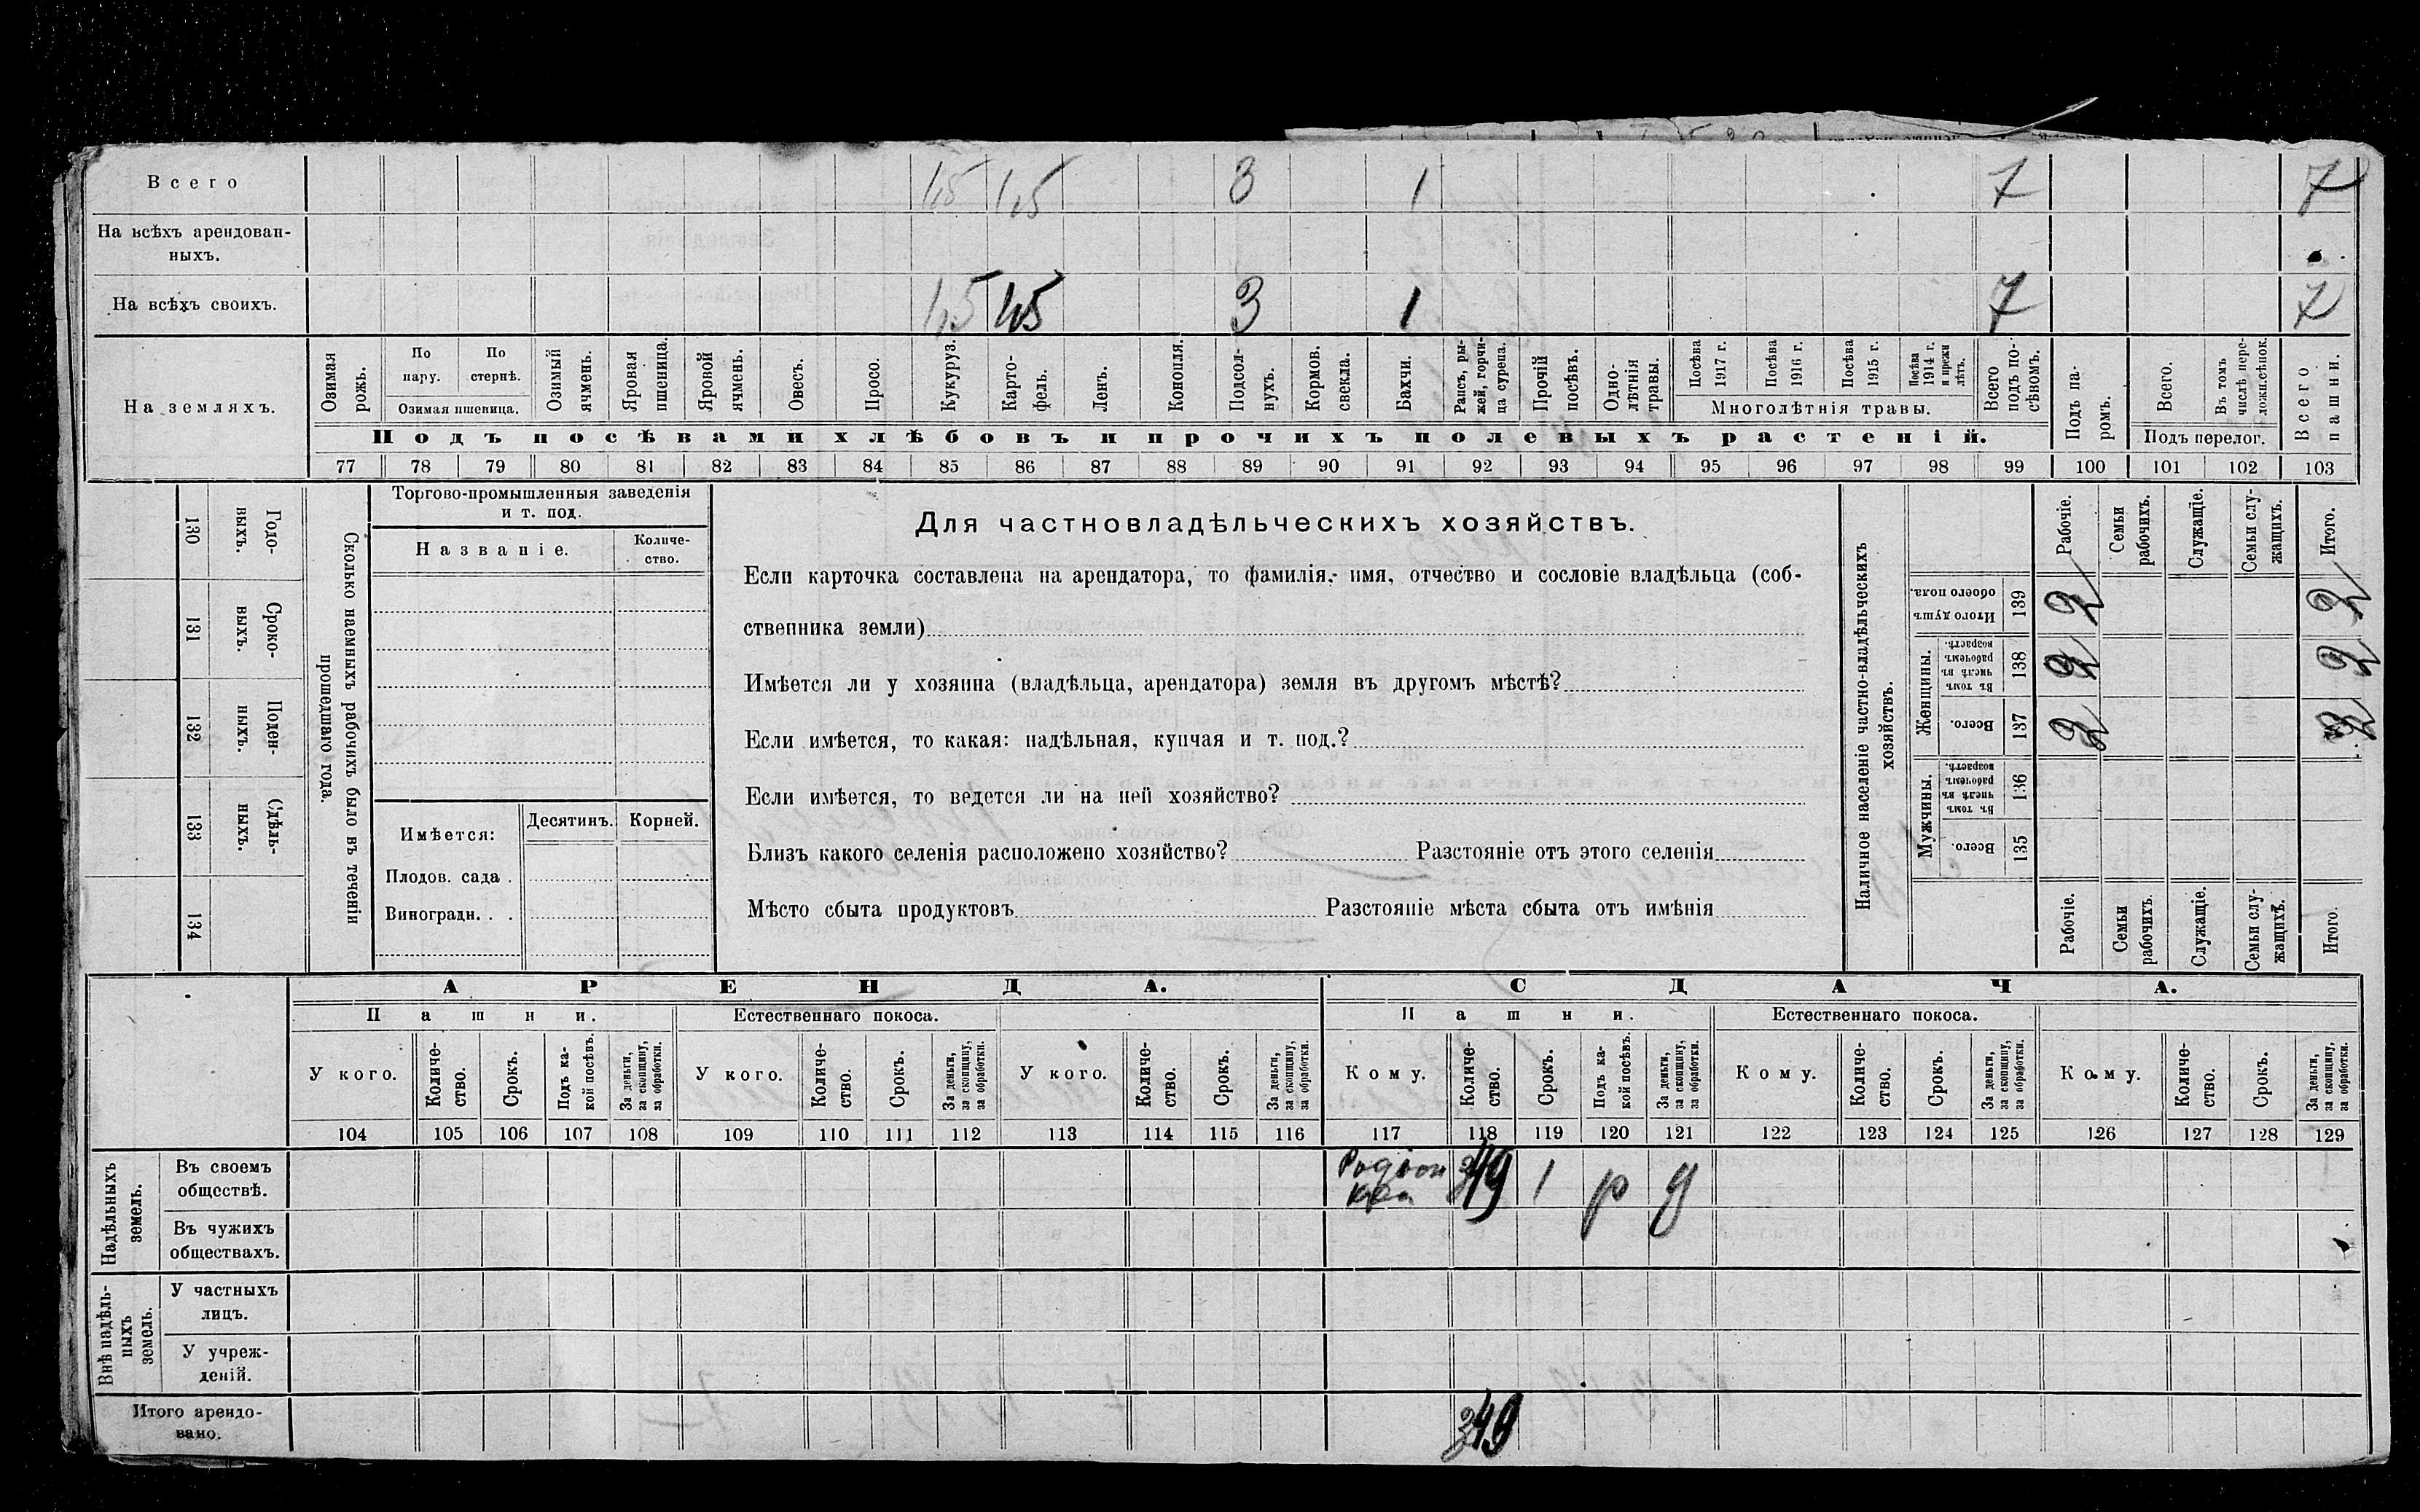 Всего 1,5 1,5 3 1 7 7
На всѣхъ арендован-
ныхъ.
На всѣхъ своихъ. 1,5 1,5 3 1 7 7
На земляхъ.
Озимая рожь.
По пару.
По стернѣ.
Озимая пшеница.
Озимый ячмень.
Яровая пшеница.
Яровой ячмень.
Овесъ.
Просо.
Кукуруз.
Карто-
фель.
Ленъ.
Конопля.
Подсол-
нухъ.
Кормов. свекла.
Бахчи.
Рапсъ, ры-
жей, горчи-
ца сурепа.
Прочій посѣвъ.
Одно-
лѣтнія
травы.
Посѣва 1917 г.
Посѣва 1916 г.
Посѣва 1915 г.
Посѣва 1914 г. и прежн лѣтъ.
Многолѣтнія травы.
Всего подъ по-
сѣвомъ.
Подъ посѣвами хлѣбовъ и прочихъ полевыхъ растеній.
Подъ па-
ромъ.
Всего.
Въ томъ числѣ пере-
ложн.сѣнок.
Подъ перелог.
Всего пашни.
77 78 79 80 81 82 83 84 85 86 87 88 89 90 91 92 93 94 95 96 97 98 99 100 101 102 103
Годо-
выхъ.
130
Сроко-
выхъ.
131
Поден-
ныхъ.
132
Сдѣль-
ныхъ.
133
134
Сколько наемныхъ рабочихъ было въ теченіи
прошедшаго года.
Торгово-промышленныя заведенія
и т. под.
Названіе.
Количе-
ство.
Имѣется:
Десятинъ. Корней.
Плодов. сада .
Виноградн. . .
Для частновладѣльческихъ хозяйствъ.
Если карточка составлена на арендатора, то фамилія, имя, отчество и сословіе владѣльца (соб-
ственника земли)
Имѣется ли у хозяина (владѣльца, арендатора) земля въ другомъ мѣстѣ?
Если имѣется, то какая: надѣльная, купчая и т. под.?
Если имѣется, то ведется ли на ней хозяйство?
Близъ какого селенія расположено хозяйство? Разстояніе отъ этого селенія
Мѣсто сбыта продуктовъ Разстояніе мѣста сбыта отъ имѣнія
Наличное населеніе частно-владѣльческихъ
хозяйствъ.
Рабочіе.
Семьи рабочихъ.
Служащіе.
Семьи слу-
жащихъ.
Итого.
Итого душъ обоего пола. 139 2 2
Женщины.
Въ томъ числѣ въ рабочемъ возрастѣ. 138 2 2
Всего. 137 2 2
Мужчины.
Въ томъ числѣ въ рабочемъ возрастѣ. 136
Всего. 135
Рабочіе.
Семьи рабочихъ.
Служащіе.
Семьи слу-
жащихъ.
Итого.
АРЕНДА. СДАЧА.
Пашни. Естественнаго покоса. Пашни. Естественнаго покоса.
У кого.
Количе-
ство.
Срокъ.
Подъ ка-
кой посѣвъ.
За деньги, за скопщину, за обработки.
У кого.
Количе-
ство.
Срокъ.
За деньги, за скопщину, за обработки.
У кого.
Количе-
ство.
Срокъ.
За деньги, за скопщину, за обработки.
Кому.
Количе-
ство.
Срокъ.
Подъ ка-
кой посѣвъ.
За деньги, за скопщину, за обработки.
Кому.
Количе-
ство.
Срокъ.
За деньги, за скопщину, за обработки.
Кому.
Количе-
ство.
Срокъ.
За деньги, за скопщину, за обработки.
104 105 106 107 108 109 110 111 112 113 114 115 116 117 118 119 120 121 122 123 124 125 126 127 128 129
Надѣльныхъ
земель.
Въ своемъ
обществѣ.
1 р д
Въ чужихъ
обществахъ.
Внѣ надѣль-
ныхъ
земель.
У частныхъ
лицъ.
У учреж-
деній.
Итого арендо-
вано.